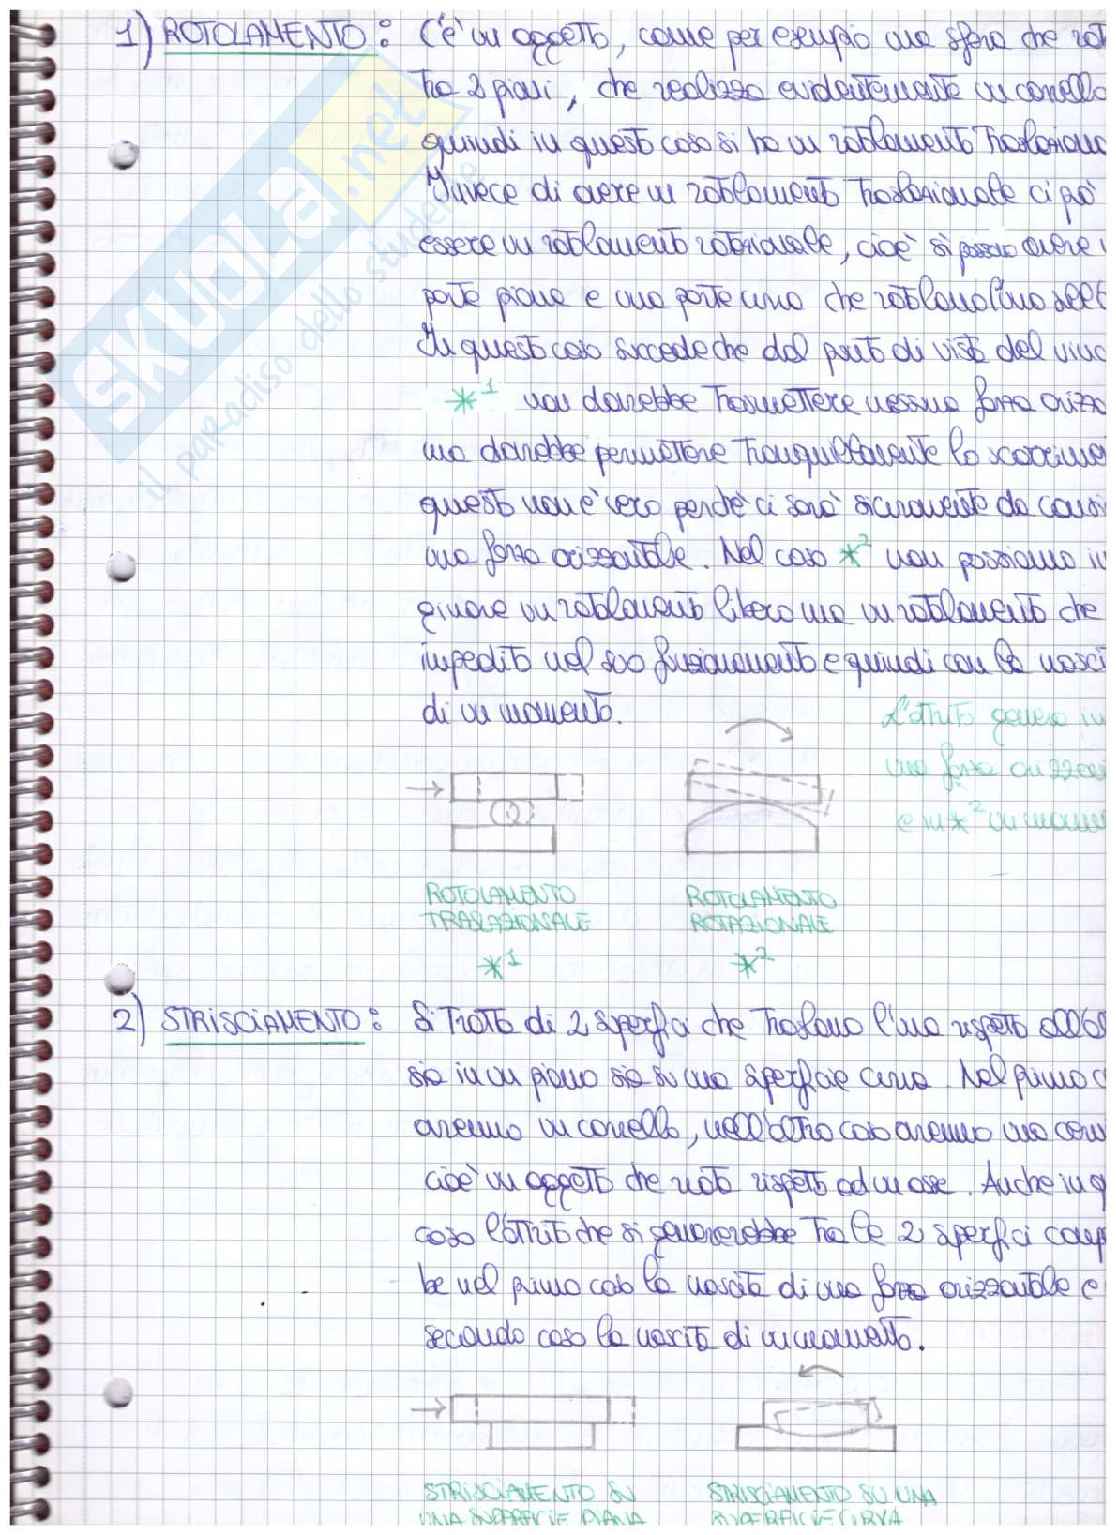 1) ROTOLAMENTO: C'è un oggetto, come per esempio una sfera che rot
tra 2 piani, che realizza evidentemente un carrello
quindi in questo caso si ha un rotolamento traslaziona
Invece di avere un rotolamento traslazionale ci può
essere un rotolamento rotazionale, cioè si possono avere u
parte piana e una parte curva che rotolano l'una sull'
In questo caso succede che dal punto di vista del vinc
*1 non dovrebbe trasmettere nessuna forza orizzo
ma dovrebbe permettere tranquillamente lo scorrime
questo non è vero perchè ci sarà sicuramente da consi
una forza orizzontale. Nel caso *2 non possiamo im
ginare un rotolamento libero ma un rotolamento che
impedito nel suo funzionamento e quindi con la nasci
di un momento.
L'attrito genera in
una forza orizzon
e in *2 un mome
ROTOLAMENTO
TRASLAZIONALE
*1
ROTOLAMENTO
ROTAZIONALE
*2
2) STRISCIAMENTO: Si tratta di 2 superfici che traslano l'una rispetto all'al
sia in un piano sia su una superficie curva. Nel primo c
avremo un carrello, nell'altro caso avremo una cern
cioè un oggetto che ruota rispetto ad un asse. Anche in q
caso l'attrito che si genererebbe tra le 2 superfici comp
be nel primo caso la nascita di una forza orizzontale e
secondo caso la nascita di un momento.
STRISCIAMENTO SU
UNA SUPERFICIE PIANA
STRISCIAMENTO SU UNA
SUPERFICIE CURVA
SKUOLA.net
il paradiso dello studente